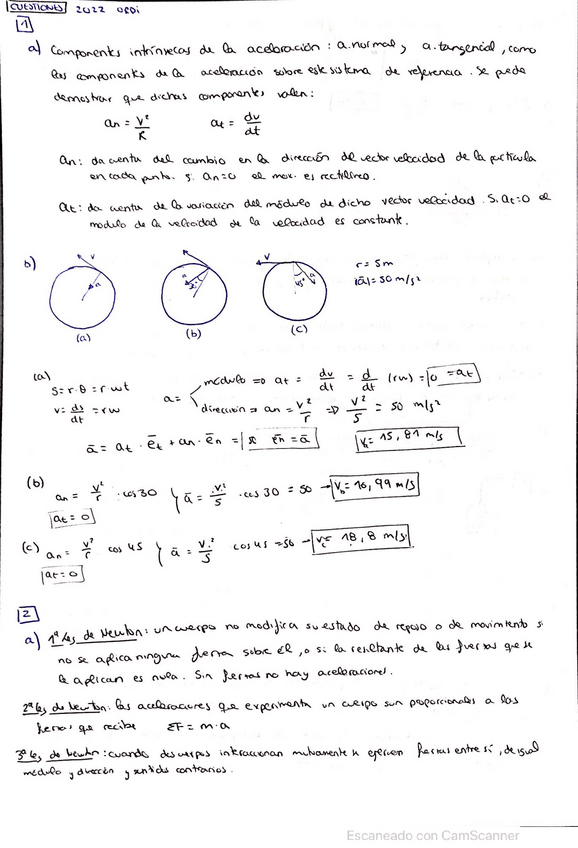 CUESTIONES 2022 ORDI
1
a) Componentes intrínsecas de la aceleración: a. normal y a. tangencial, como
las componentes de la aceleración sobre este sistema de referencia. Se puede
demostrar que dichas componentes valen:
an = v²/R at = dv/dt
an: da cuenta del cambio en la dirección del vector velocidad de la partícula
en cada punto. Si an=0 el mov. es rectilíneo.
at: da cuenta de la variación del módulo de dicho vector velocidad. Si at=0 el
modulo de la velocidad de la velocidad es constante.
b)
v a
a 30°
v 45° a
r = 5m
|ā| = 50 m/s²
(a) (b) (c)
(a)
s = r·θ = r·wt
v = ds/dt = rw
a = módulo => at = dv/dt = d/dt (rw) = 0 = at
dirección => an = v²/r => v²/5 = 50 m/s²
ā = at · ēt + an · ēn = ēn = ā
v = 15,81 m/s
(b)
an = v²/r · cos 30 ā = v²/5 · cos 30 = 50 → Vb = 16,99 m/s
at = 0
(c)
an = v²/r cos 45 ā = v²/5 cos 45 = 50 → Vc = 18,8 m/s
at = 0
2
a) 1ª Ley de Newton: un cuerpo no modifica su estado de reposo o de movimiento si
no se aplica ninguna fuerza sobre él, o si la resultante de las fuerzas que se
le aplican es nula. Sin fuerzas no hay aceleraciones.
2ª ley de Newton: las aceleraciones que experimenta un cuerpo son proporcionales a las
fuerzas que recibe ΣF = m·a
3ª ley de Newton: cuando dos cuerpos interaccionan mutuamente se ejercen fuerzas entre sí, de igual
módulo y dirección y sentidos contrarios.
Escaneado con CamScanner